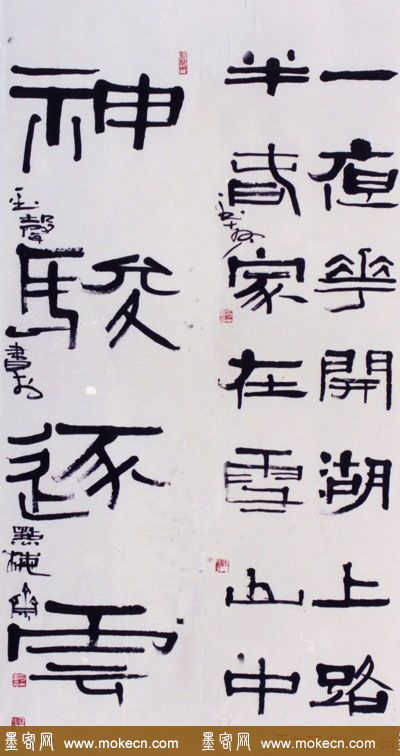 一夜華開湖上路
半春家在雪山中
神駿逐雲
墨客网 www.mokecn.com 墨客网 www.mokecn.com